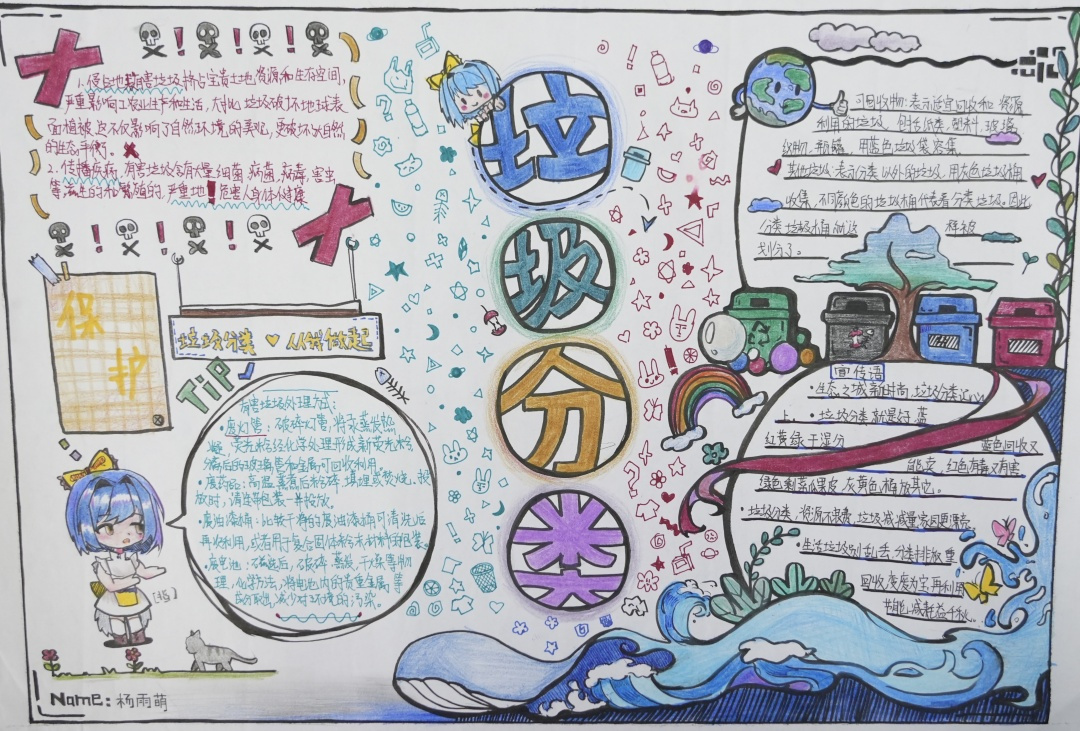 垃
圾
分
类
1.侵占地:有害垃圾挤占宝贵土地资源和生存空间,
严重影响工农业生产和生活,大批垃圾破坏地球表
面植被,这不仅影响了自然环境的美观,更破坏大自然
的生态平衡。
2.传播疾病:有害垃圾含有大量细菌,病菌,病毒,害虫
等
严重地!危害人身体健康
保
护
垃圾分类 ♥ 从我做起
TiP
有害垃圾处理方式:
·废灯管:破碎灯管,将汞蒸发热
凝,荧光粉经化学处理形成新荧光粉,
分离后的玻璃管和金属可回收利用
·废药品:高温蒸煮后粉碎,填埋或焚烧,投
放时,请连带包装一并投放。
·废油漆桶:比较干净的废油漆桶可清洗后
再次利用,或者用于复合固体粉末材料的包装。
·废电池:
理,化学方法,将电池内的贵重金属,等
减少对环境的污染。
Name:杨雨萌
可回收物:表示适宜回收和资源
利用的垃圾,包括纸类,塑料,玻璃
织物,
用蓝色垃圾袋容集
其他垃圾:表示分类以外的垃圾,用灰色垃圾桶
收集,不同颜色的垃圾桶代表着分类垃圾。因此
分类垃圾
样被
划分了。
宣传语
·生态之城新时尚,垃圾分类记心
上。·垃圾分类就是好,蓝
红黄绿干湿分
蓝色回收又
能卖,红色有毒又有害
绿色剩菜瓜果皮,灰黄色桶放其它。
·垃圾分类,资源不浪费,垃圾减
·生活垃圾别乱丢,分类排放
回收废废为宝,再利用